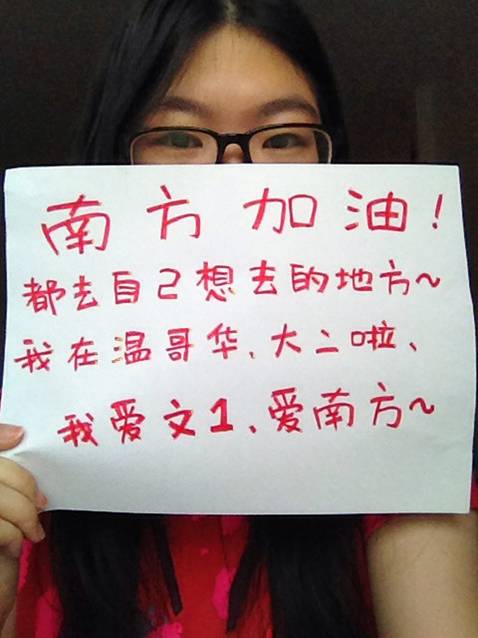 南方加油!
都去自己想去的地方~
我在温哥华、大二啦、
我爱文1、爱南方~